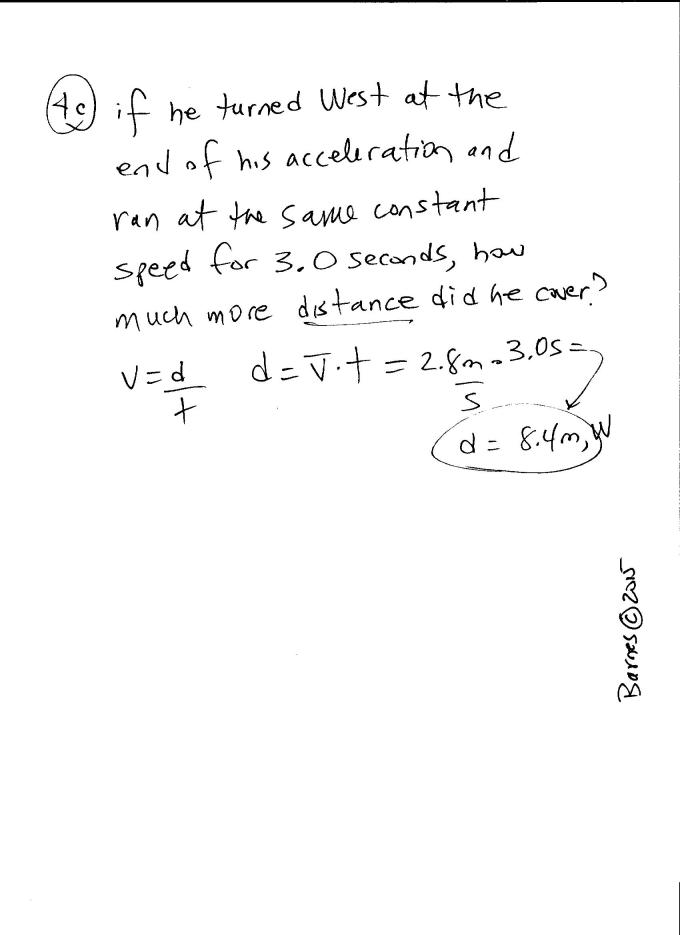 4c if he turned West at the
end of his acceleration and
ran at the same constant
speed for 3.0 seconds, how
much more distance did he cover?
V = d/t d = V̅·t = 2.8m/s · 3.0s =
d = 8.4m, W
Barnes © 2015